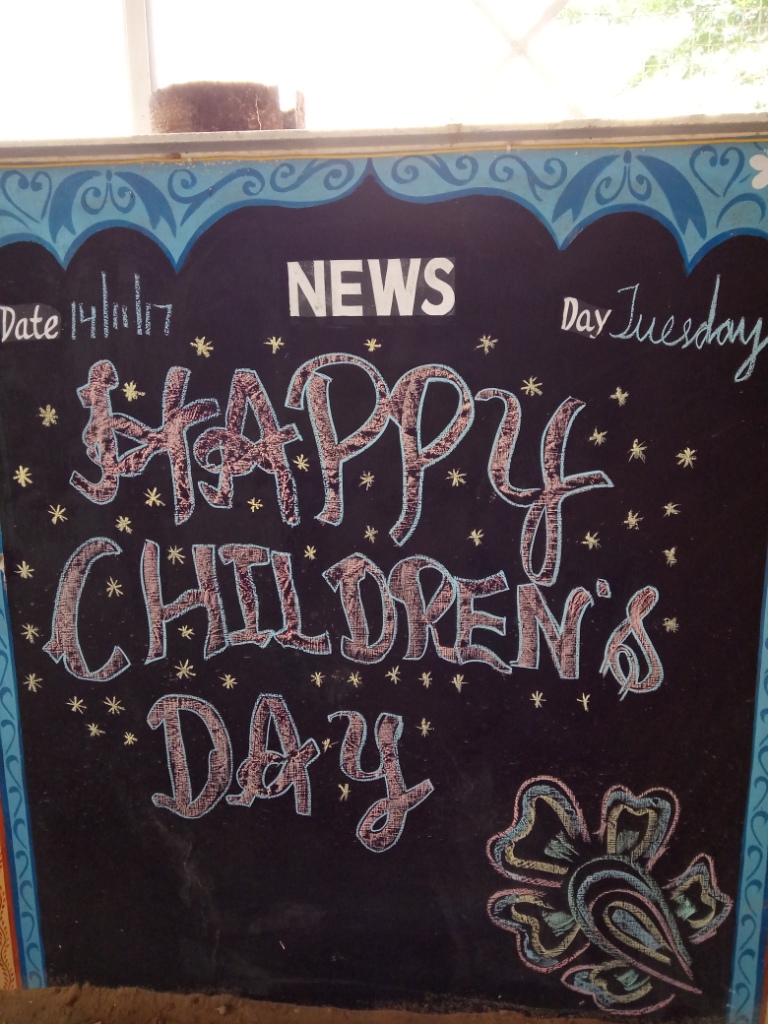 NEWS
Date 14/11/17 Day Tuesday
HAPPY
CHILDREN'S
DAY